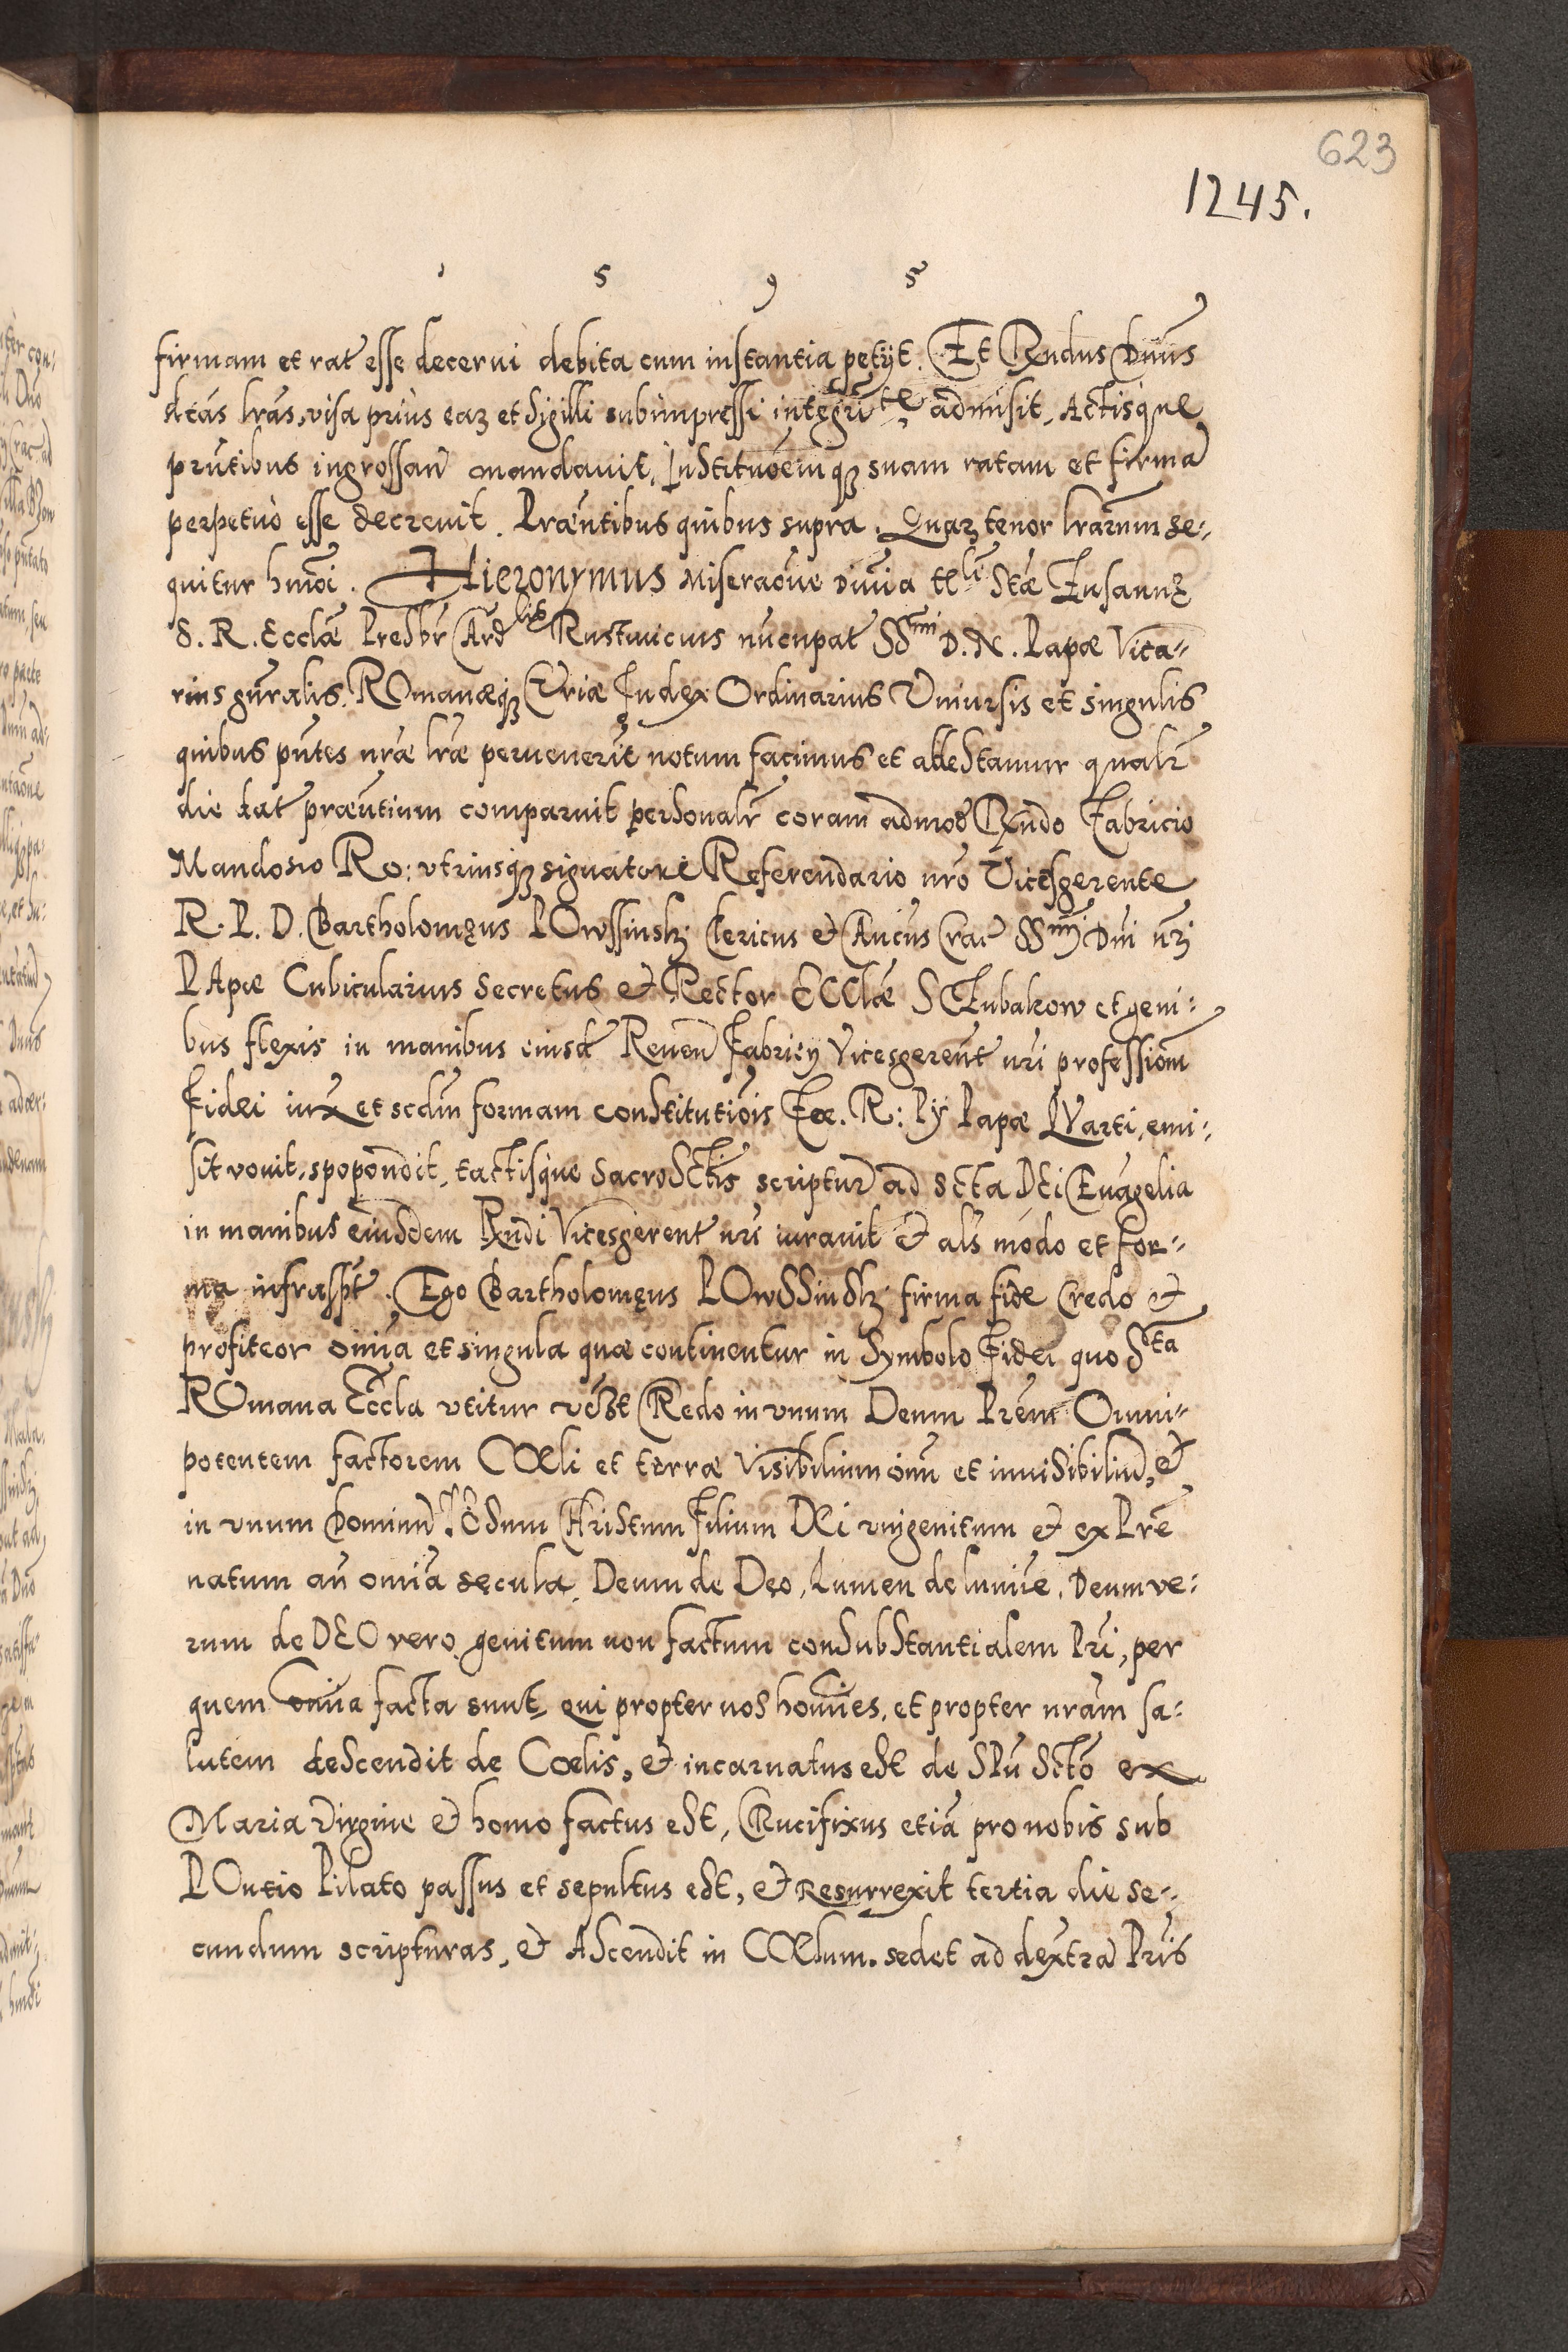 623
1245.
1 5 9 5
firmam et rat̃ esse decerni debita cum instantia petÿt. Et Rñdus Dñus
dctas lras, visa prius eaꝝ et sigilli subimpressi integritte, admisit, Actisque
pñtibus ingrossari mandauit, Institutõemqꝫ suam ratam et firmã
perpetuò esse decreuit. Præntibus quibus supra. Quaꝝ tenor lrarum se-
quitur hmõi. Hieronymus Miseraõne Diuina ttli Stæ Susannę
S. R. Ecclæ Presbr Cardlis Rusticucius nũcupat̃ SSmi D. N. Papæ Vica-
rius gñralis. ROmanæqꝫ CVriæ Iudex Ordinarius Vniuersis et singulis
quibus pñtes nræ lræ peruenerit notum facimus et attestamur qualr
die dat̃ præntium comparuit personalr coram admod Rñdo Fabricio
Mandosio Ro: vtriusqꝫ signaturę Referendario nrõ Vicesgerente
R. P. D. Bartholomęus POwssinskj Clericus et Canĉus Crac̃ SSmj Dñi nrj
PApæ Cubicularius Secretus et Rector ECClæ SCZubakow et geni-
bus flexis in manibus eiusd̃ Reuen̄ Fabricy Vicesgerent̃ nrĩ professiom̃
fidei iuxᵃ et scdm̃ formam constitutiõis Foe. R: Pÿ Papæ QVarti, emi-
sit vouit, spopondit, tactisque sacroSctis scriptur̃ ad Scta DEi Euãgelia
in manibus eiusdem Rñdi Vicesgerent̃ nrĩ iurauit et als modo et for-
ma infraspt̃. Ego Bartholomęus POwSSinSkj firma fide Credo et
profiteor omnia et singula quæ continentur in Symbolo Fidei quo Sta
ROmana Ecclã vtitur vdꝫt CRedo in vnum Deum Prẽm Omni-
potentem factorem COEli et terræ visibilium õium et inuisibiliũ, et
in vnum Dominũ IESum CHristum Filium DEi vnigenitum et ex Prẽ
natum añ omĩa sęcula. Deum de Deo, lumen de lumĩe, Deum ve-
rum de DEO vero, genitum non factum conSubStantialem Prĩ, per
quem omnia facta sunt, qui propter nos homĩes, et propter nrãm sa-
lutem deScendit de Cœlis, et incarnatus eSt de SPũ Sctõ ex
Maria Virgine et homo factus eSt, CRucifixus etiã pro nobis sub
POntio Pilato passus et sepultus eSt, et Resurrexit tertia die se-
cundum scripturas, et AScendit in COElum. sedet ad dextrã Prĩs